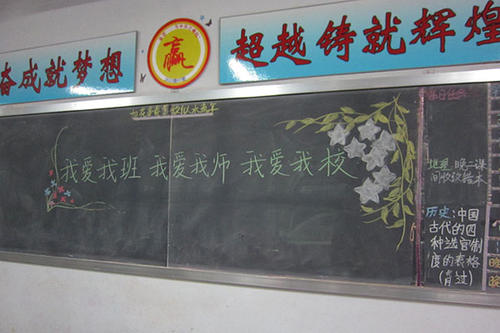 奋成就梦想
赢
超越铸就辉煌
我爱我班 我爱我师 我爱我校
地理:晚二课
历史:中国
古代的四
种选官制
度的表格